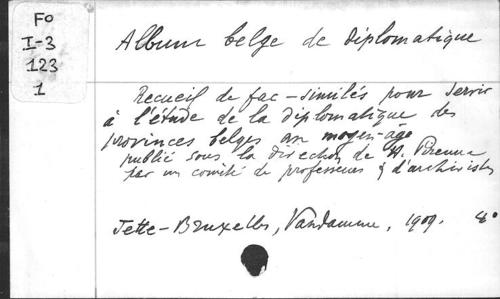 Fo
I-3
123
1
Album belge de diplomatique
Recueil de fac-similés pour servir
à l'étude de la diplomatique des
provinces belges au moyen-âge
publié sous la direction de H. Pirenne
par un comité de professeurs & d'archivistes
Jette-Bruxelles, Vandamme, 1909. 4°